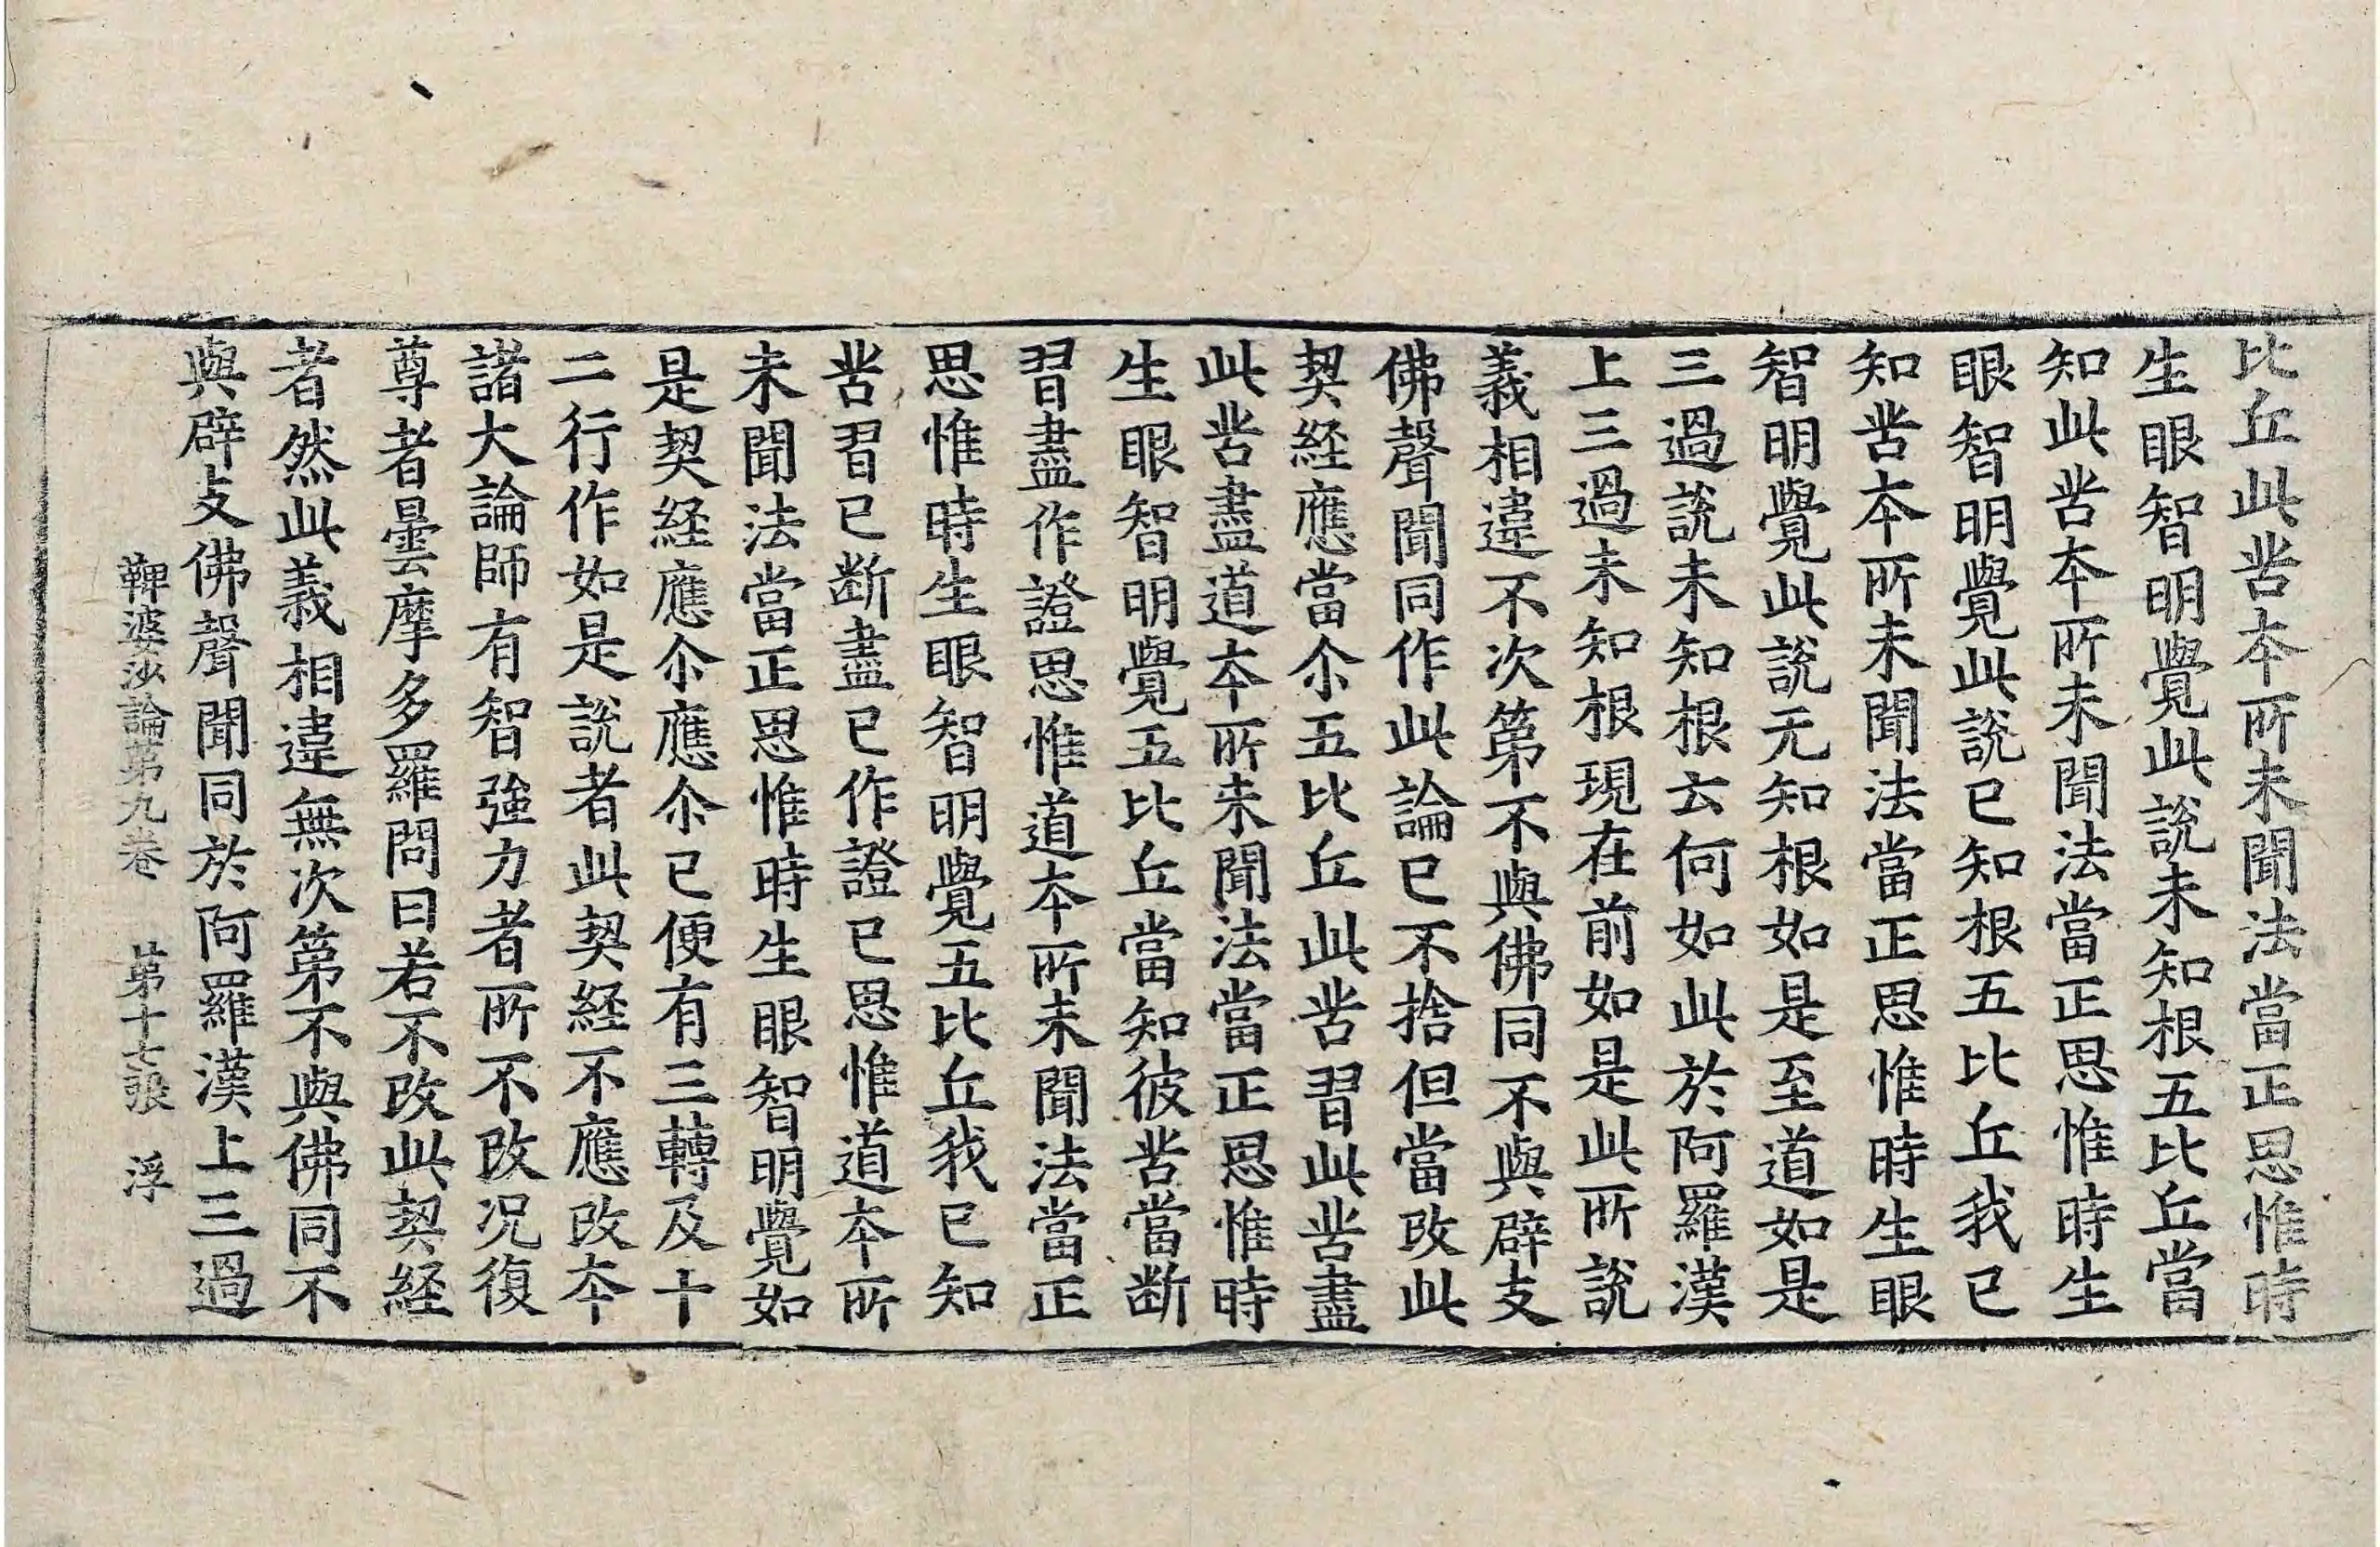 比丘此苦本所未聞法當正思惟時
生眼智明覺此說未知根五比丘當
知此苦本所未聞法當正思惟時生
眼智明覺此說已知根五比丘我已
知苦本所未聞法當正思惟時生眼
智明覺此說无知根如是至道如是
三過說未知根云何如此於阿羅漢
上三過未知根現在前如是此所說
義相違不次第不與佛同不與辟支
佛聲聞同作此論已不捨但當改此
契経應當尒五比丘此苦習此苦盡
此苦盡道本所未聞法當正思惟時
生眼智明覺五比丘當知彼苦當断
習盡作證思惟道本所未聞法當正
思惟時生眼智明覺五比丘我已知
苦習已断盡已作證已思惟道本所
未聞法當正思惟時生眼智明覺如
是契経應尒應尒已便有三轉及十
二行作如是說者此契経不應改本
諸大論師有智強力者所不改况復
尊者曇摩多羅問曰若不改此契経
者然此義相違無次第不與佛同不
與辟支佛聲聞同於阿羅漢上三過
鞞婆沙論第九卷　第十七張　浮